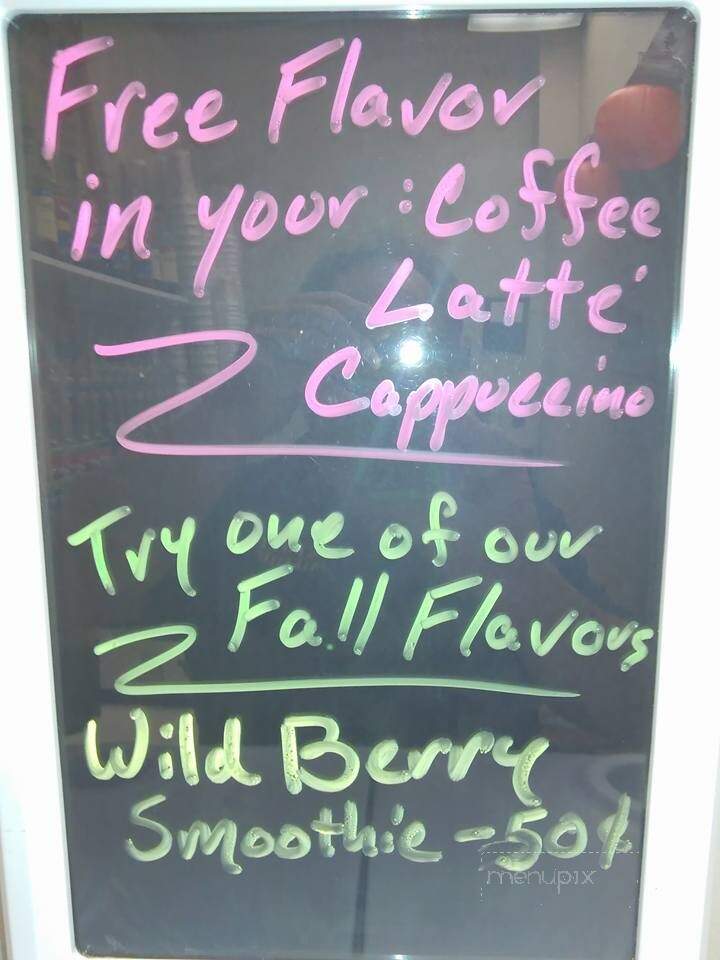 Free Flavor
in your : Coffee
Latté
Cappuccino
Try one of our
Fall Flavors
Wild Berry
Smoothie -50¢
menupix